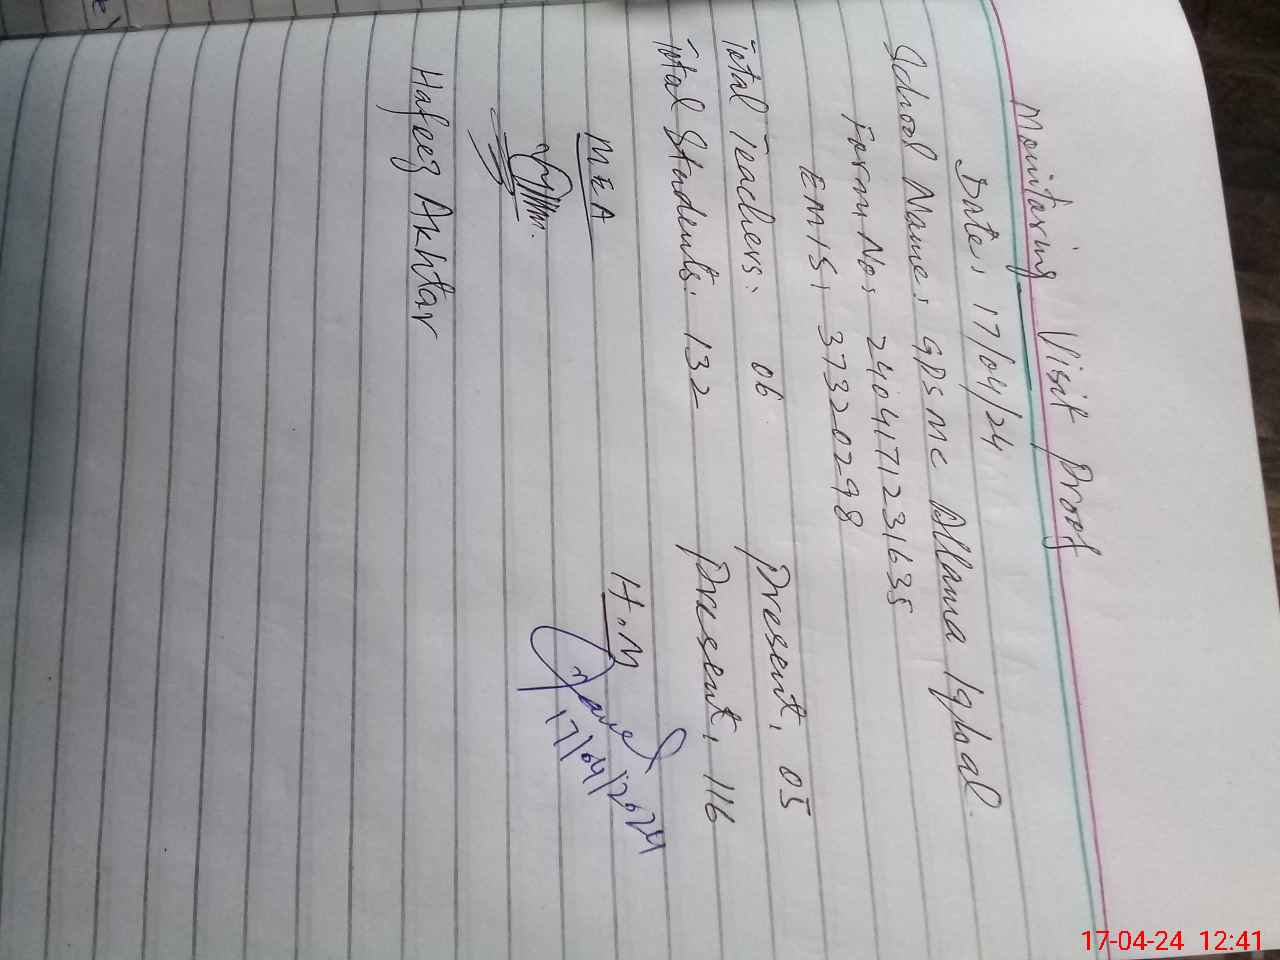 Monitoring Visit Proof
Date: 17/04/24
School Name: GPS MC Allama Iqbal
Form No: 2404171231635
EMIS: 37320298
Total Teachers: 06 Present: 05
Total Students: 132 Present: 116
MEA H.M
17/04/2024
Hafeez Akhtar
17-04-24 12:41